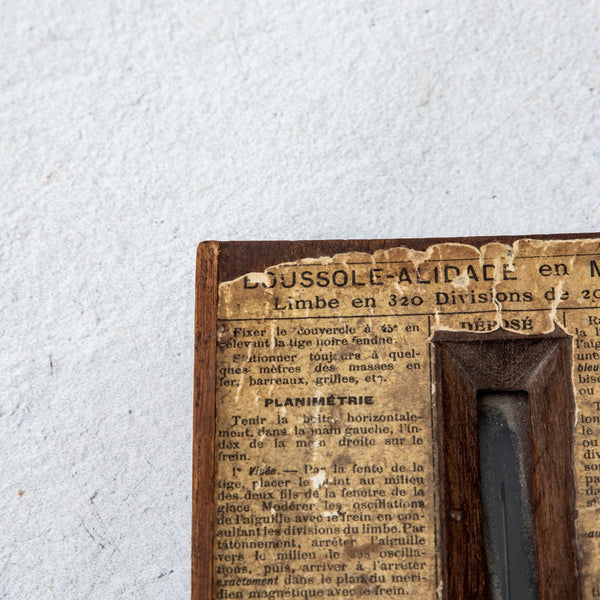 BOUSSOLE-ALIDADE en M
Limbe en 320 Divisions de 20
DÉPOSÉ
Fixer le couvercle à 45° en
relevant la tige noire fendue.
Stationner toujours à quel-
ques mètres des masses en
fer, barreaux, grilles, etc.
PLANIMÉTRIE
Tenir la boîte, horizontale-
ment, dans la main gauche, l'in-
dex de la main droite sur le
frein.
1° Visée. — Par la fente de la
tige, placer le point au milieu
des deux fils de la fenêtre de la
glace. Modérer les oscillations
de l'aiguille avec le frein en con-
sultant les divisions du limbe. Par
tâtonnement, arrêter l'aiguille
vers le milieu de ses oscilla-
tions, puis, arriver à l'arrêter
exactement dans le plan du méri-
dien magnétique avec le frein.
Ra
la l
l'aig
une
bleu
bise
ou
T
lon
le
ou
div
son
se
dan
au